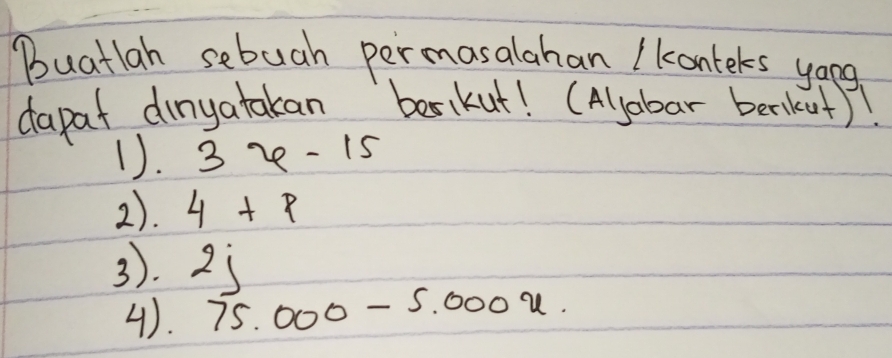 Buatlah sebuah permasalahan / konteks yang
dapat dinyatakan berikut! (Aljabar berikut)!
1). 3 x - 15
2). 4 + P
3). 2j
4). 75.000 - 5.000 x.